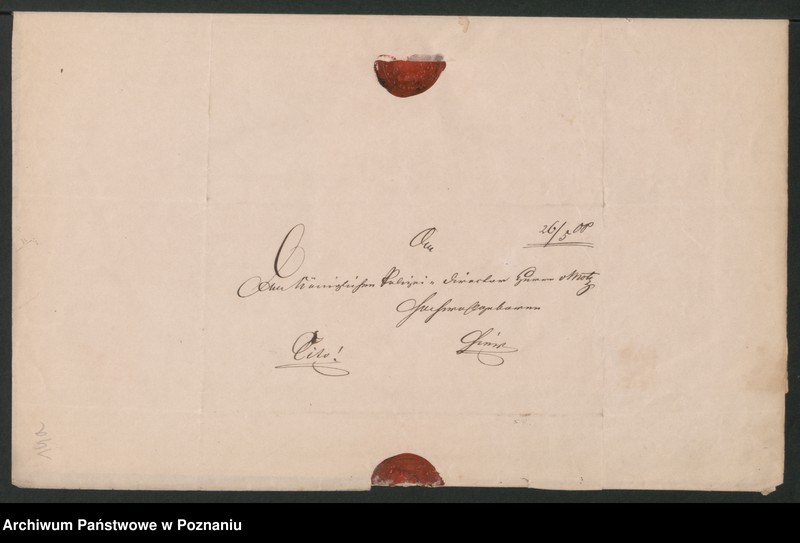 26/5 08
An
den Königlichen Polizei-Director Herrn Motz
Hochwohlgeboren
Cito!
hier
Archiwum Państwowe w Poznaniu